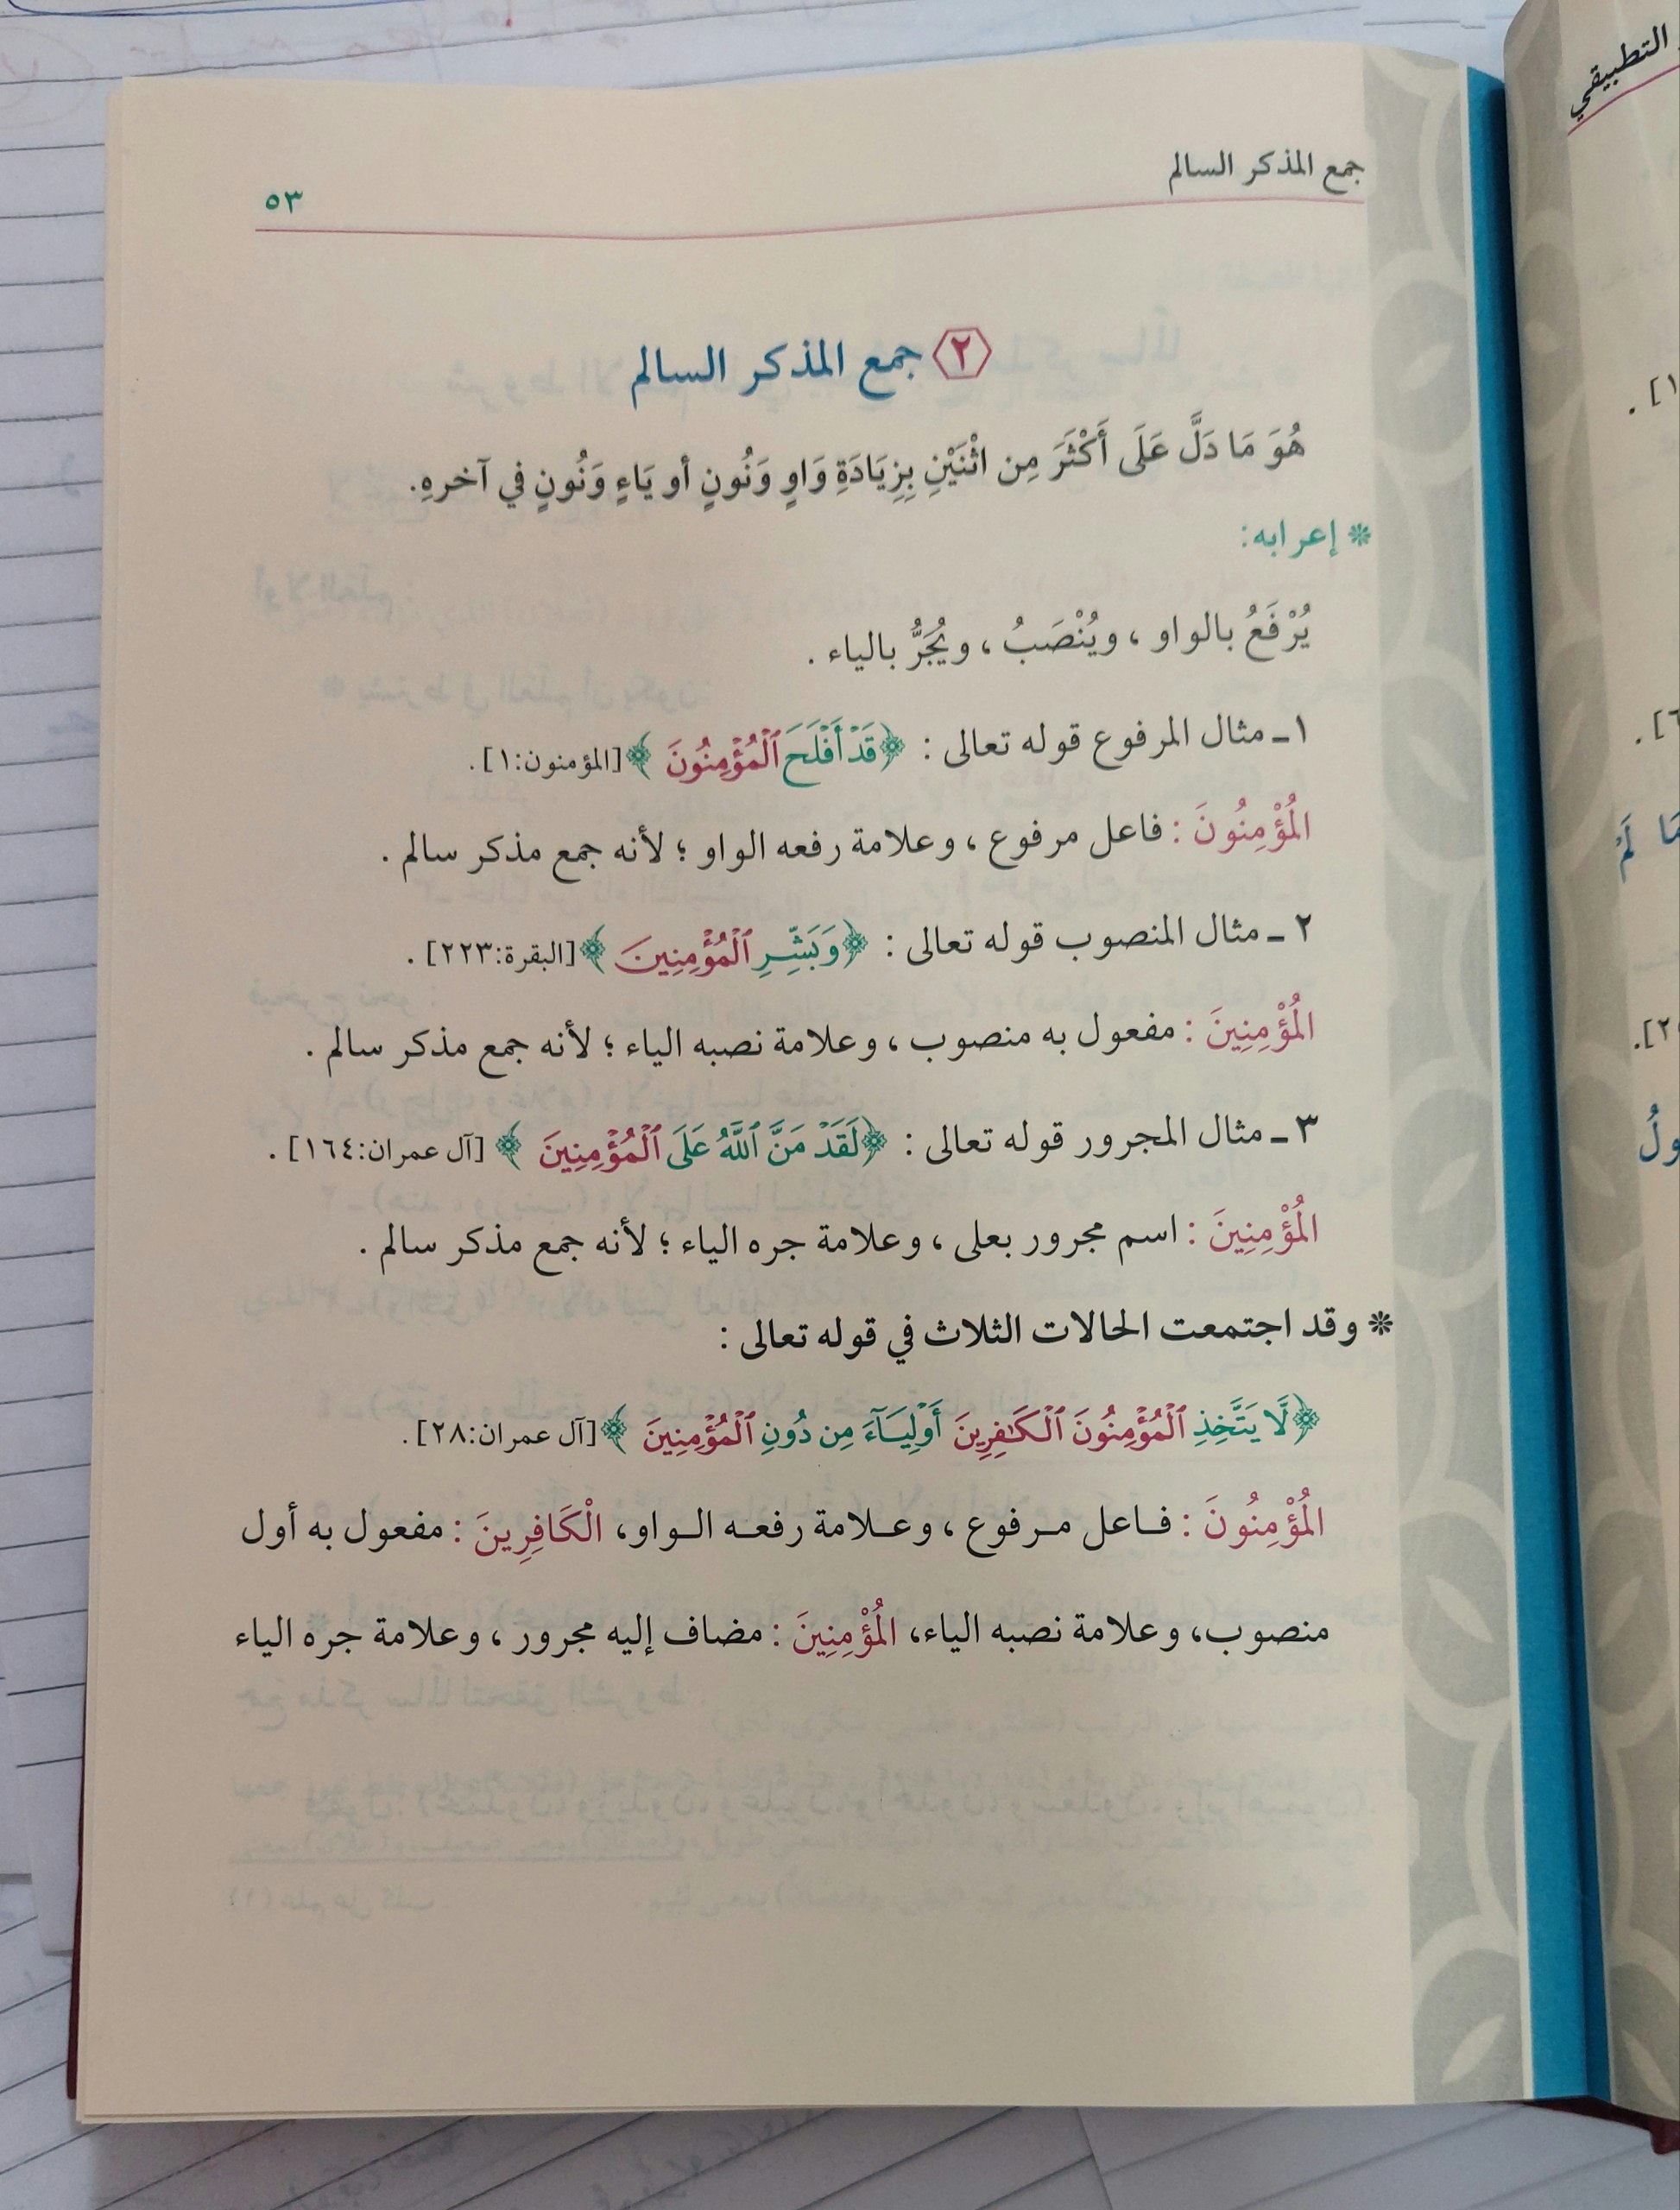 جمع المذكر السالم
٥٣
٢ جمع المذكر السالم
هُوَ مَا دَلَّ عَلَى أَكْثَرَ مِن اثْنَيْنِ بِزِيَادَةِ وَاوٍ وَنُونٍ أو يَاءٍ وَنُونٍ في آخرهِ.
* إعرابه:
يُرْفَعُ بالواو ، ويُنْصَبُ ، ويُجَرُّ بالياء .
١ ـ مثال المرفوع قوله تعالى : ﴿قَدْ أَفْلَحَ ٱلْمُؤْمِنُونَ ﴾ [المؤمنون:١] .
المُؤْمِنُونَ : فاعل مرفوع ، وعلامة رفعه الواو ؛ لأنه جمع مذكر سالم .
٢ ـ مثال المنصوب قوله تعالى : ﴿وَبَشِّرِ ٱلْمُؤْمِنِينَ ﴾ [البقرة:٢٢٣] .
المُؤْمِنِينَ : مفعول به منصوب ، وعلامة نصبه الياء ؛ لأنه جمع مذكر سالم .
٣ ـ مثال المجرور قوله تعالى : ﴿لَقَدْ مَنَّ ٱللَّهُ عَلَى ٱلْمُؤْمِنِينَ ﴾ [آل عمران:١٦٤] .
المُؤْمِنِينَ : اسم مجرور بعلى ، وعلامة جره الياء ؛ لأنه جمع مذكر سالم .
* وقد اجتمعت الحالات الثلاث في قوله تعالى :
﴿لَّا يَتَّخِذِ ٱلْمُؤْمِنُونَ ٱلْكَٰفِرِينَ أَوْلِيَآءَ مِن دُونِ ٱلْمُؤْمِنِينَ ﴾ [آل عمران:٢٨] .
المُؤْمِنُونَ : فاعل مرفوع ، وعلامة رفعه الواو، الْكَافِرِينَ : مفعول به أول
منصوب، وعلامة نصبه الياء، المُؤْمِنِينَ : مضاف إليه مجرور ، وعلامة جره الياء
التطبيقي